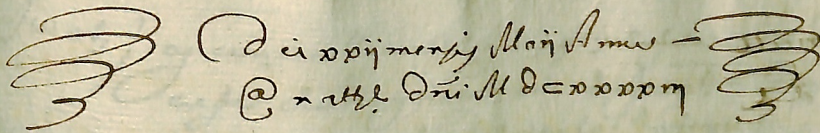 Dei xxij mensis Maij Anno
@ natt̃e Dñi M dcxxxxiij